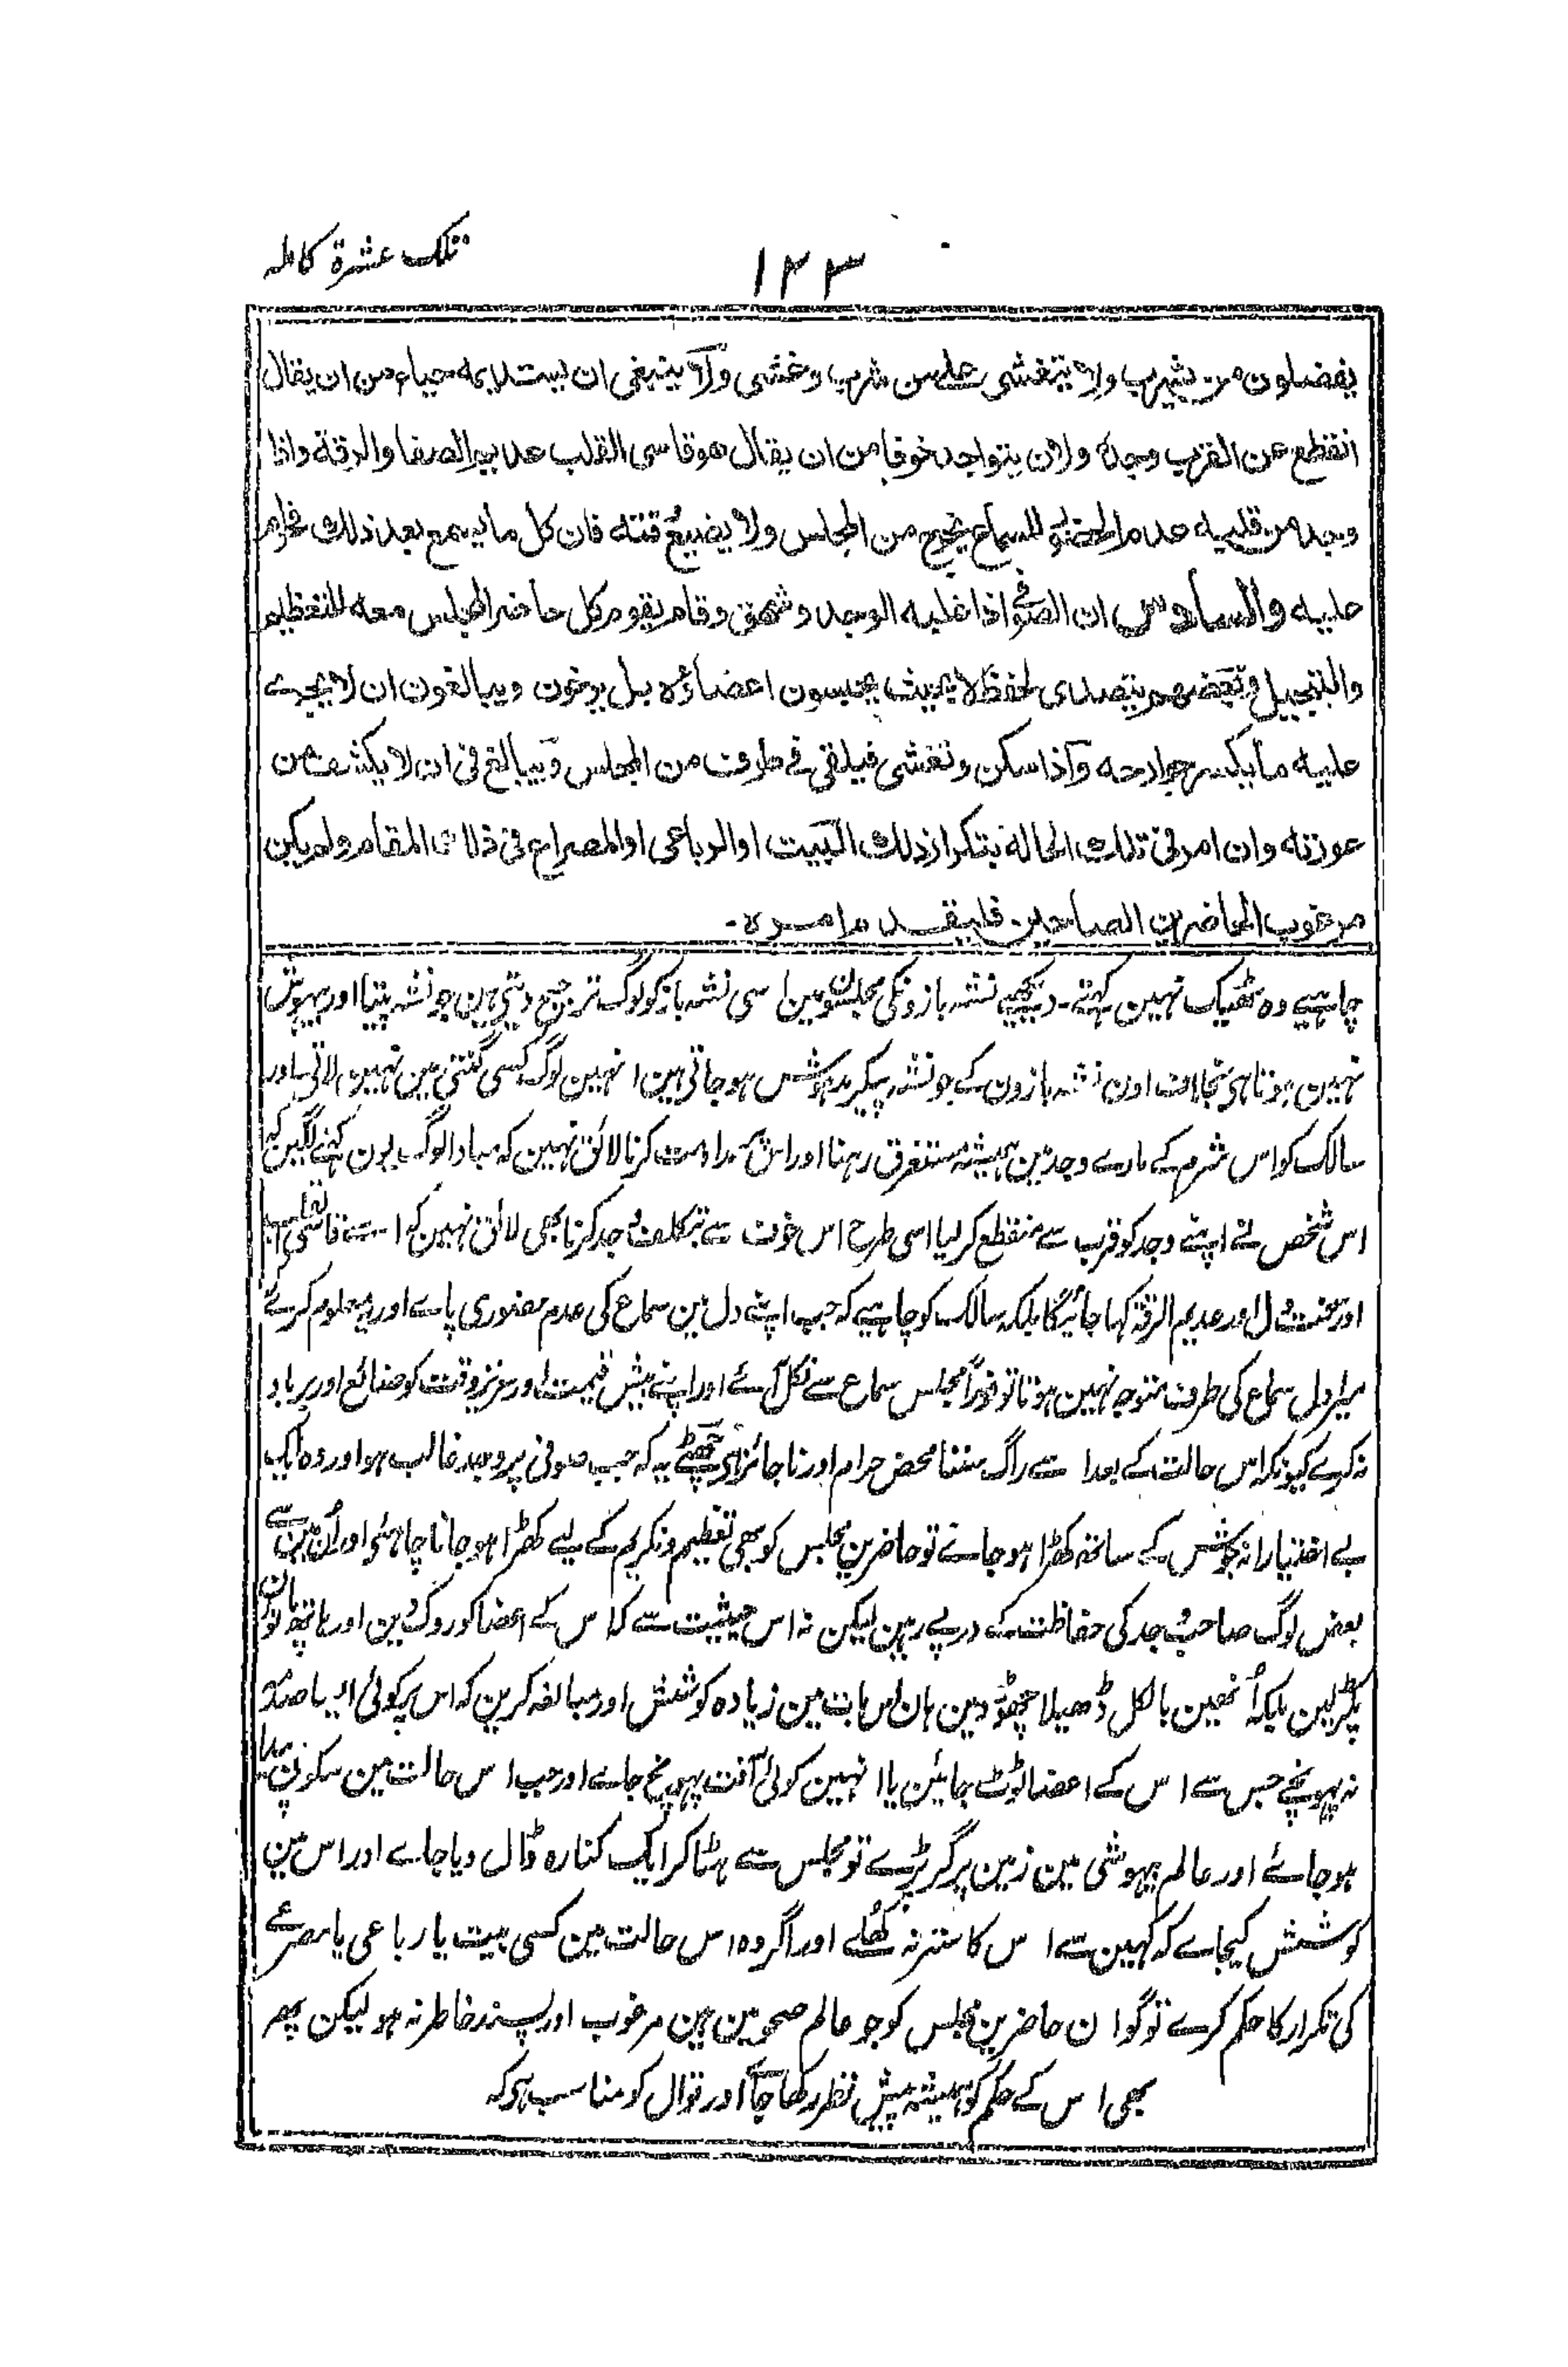 تلک عشرۃ کاملہ
۱۲۳
يفضلون من يشرب ولا يتغشى على من شرب وغشى ولا ينبغى ان يستديمه حياء من ان يقال
انقطع عن القرب وجده ولا ان يتواجد خوفا من ان يقال هو قاسى القلب عديم الصفا والرقة واذا
وجد من قلبه عدم الحضور للسماع يخرج من المجلس ولا يضيع وقته فان كل ما يسمع بعد ذلك فحرام
عليه والسادس ان الصوفى اذا غلبه الوجد وشهق وقام يقوم كل حاضر المجلس معه للتعظيم
والتبجيل وبعضهم يتصدى لحفظه لا بحيث يحبسون اعضاؤه بل يرخون ويبالغون ان لا يجرے
عليه ما يكسر جوارحه وآذا سكن وتغشى فيلقى فے طرف من المجلس ويبالغ فى ان لا يكشف من
عورته وان امر فى تلك الحالة بتكرار ذلك البيت او الرباعى او المصراع فى ذلك المقام ولم يكن
مرغوب الحاضرين الصاحين فليقدم امره۔
چاہیے وہ ٹھیک نہین کہتے۔ دیکھیے نشہ بازونکی مجلسون مین اسی نشہ باز کو لوگ ترجیح دیتے ہین جو نشہ پیتا اور بیہوش
نہین ہوتا ہی بخلاف اون نشہ بازون کے جو نشہ پیکر مدہوش ہو جاتی ہین انہین لوگ کسی گنتی مین نہین لاتی اور
سالک کو اس شرم کے مارے وجد مین ہمیشہ مستغرق رہنا اور اس پر مداومت کرنا لائق نہین کہ مبادا لوگ یون کہنے لگین کہ
اس شخص نے اپنے وجد کو قرب سے منقطع کر لیا اسی طرح اس خوف سے بتکلف وجد کرنا بھی لائق نہین کہ اسے قاسی القلب
اور سخت دل اور عدیم الرقۃ کہا جائیگا بلکہ سالک کو چاہیے کہ جب اپنے دل مین سماع کی عدم حضوری پاے اور یہ معلوم کرے کہ
میرا دل سماع کی طرف متوجہ نہین ہوتا تو فوراً مجلس سماع سے نکل آئے اور اپنے بیش قیمت اور عزیز وقت کو ضائع اور برباد
نہ کرے کیونکہ اس حالت کے بعد اسے راگ سننا محض حرام اور ناجائز ہی چھٹے یہ کہ جب صوفی پر وجد غالب ہو اور وہ ایک
بے اختیارانہ جوش کے ساتھ کھڑا ہو جاے تو حاضرین مجلس کو بھی تعظیم و تکریم کے لیے کھڑا ہو جانا چاہئی اور اُن مین سے
بعض لوگ صاحب وجد کی حفاظت کے درپے رہین لیکن نہ اس حیثیت سے کہ اس کے اعضا کو روک دین اور ہاتھ پاؤن
پکڑ لین بلکہ اُنھین بالکل ڈھیلا چھوڑ دین ہان اس بات مین زیادہ کوشش اور مبالغہ کرین کہ اس پر کوئی ایسا صدمہ
نہ پہونچے جس سے اس کے اعضا ٹوٹ جائین یا انہین کوئی آفت پہونچ جاے اور جب اس حالت مین سکون پیدا
ہو جائے اور عالم بیہوشی مین زمین پر گر پڑے تو مجلس سے ہٹا کر ایک کنارہ ڈال دیا جاے اور اس مین
کوشش کیجاے کہ کہین سے اس کا ستر نہ کھُلے اور اگر وہ اس حالت مین کسی بیت یا رباعی یا مصرعے
کی تکرار کا حکم کرے تو گو ان حاضرین مجلس کو جو عالم صحو مین ہین مرغوب اور پسند خاطر نہ ہو لیکن پھر
بھی اس کے حکم کو ہمیشہ پیش نظر رکھا جائے اور قوال کو مناسب ہی کہ